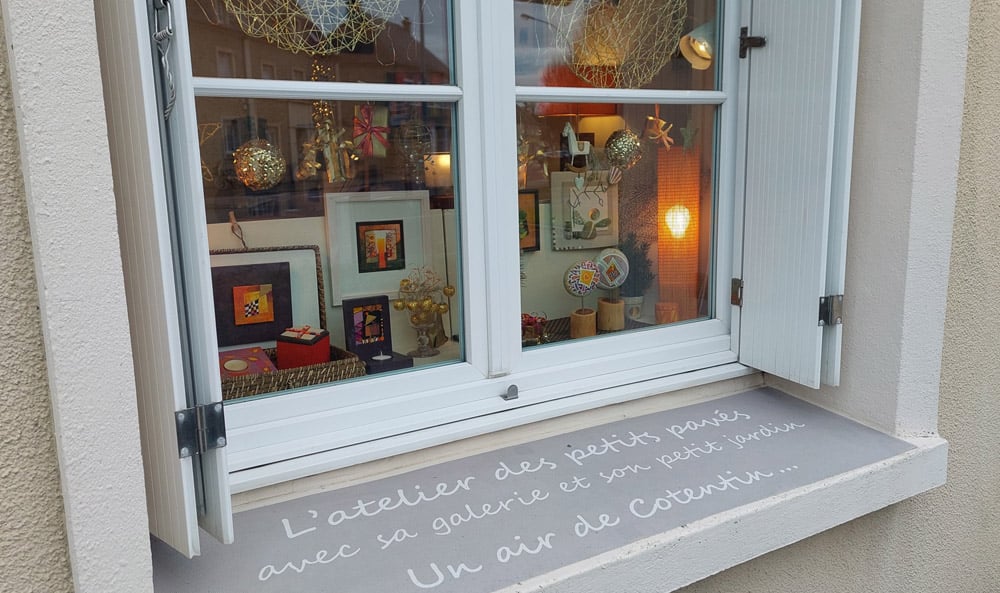 L'atelier des petits pavés
avec sa galerie et son petit jardin
Un air de Cotentin ...